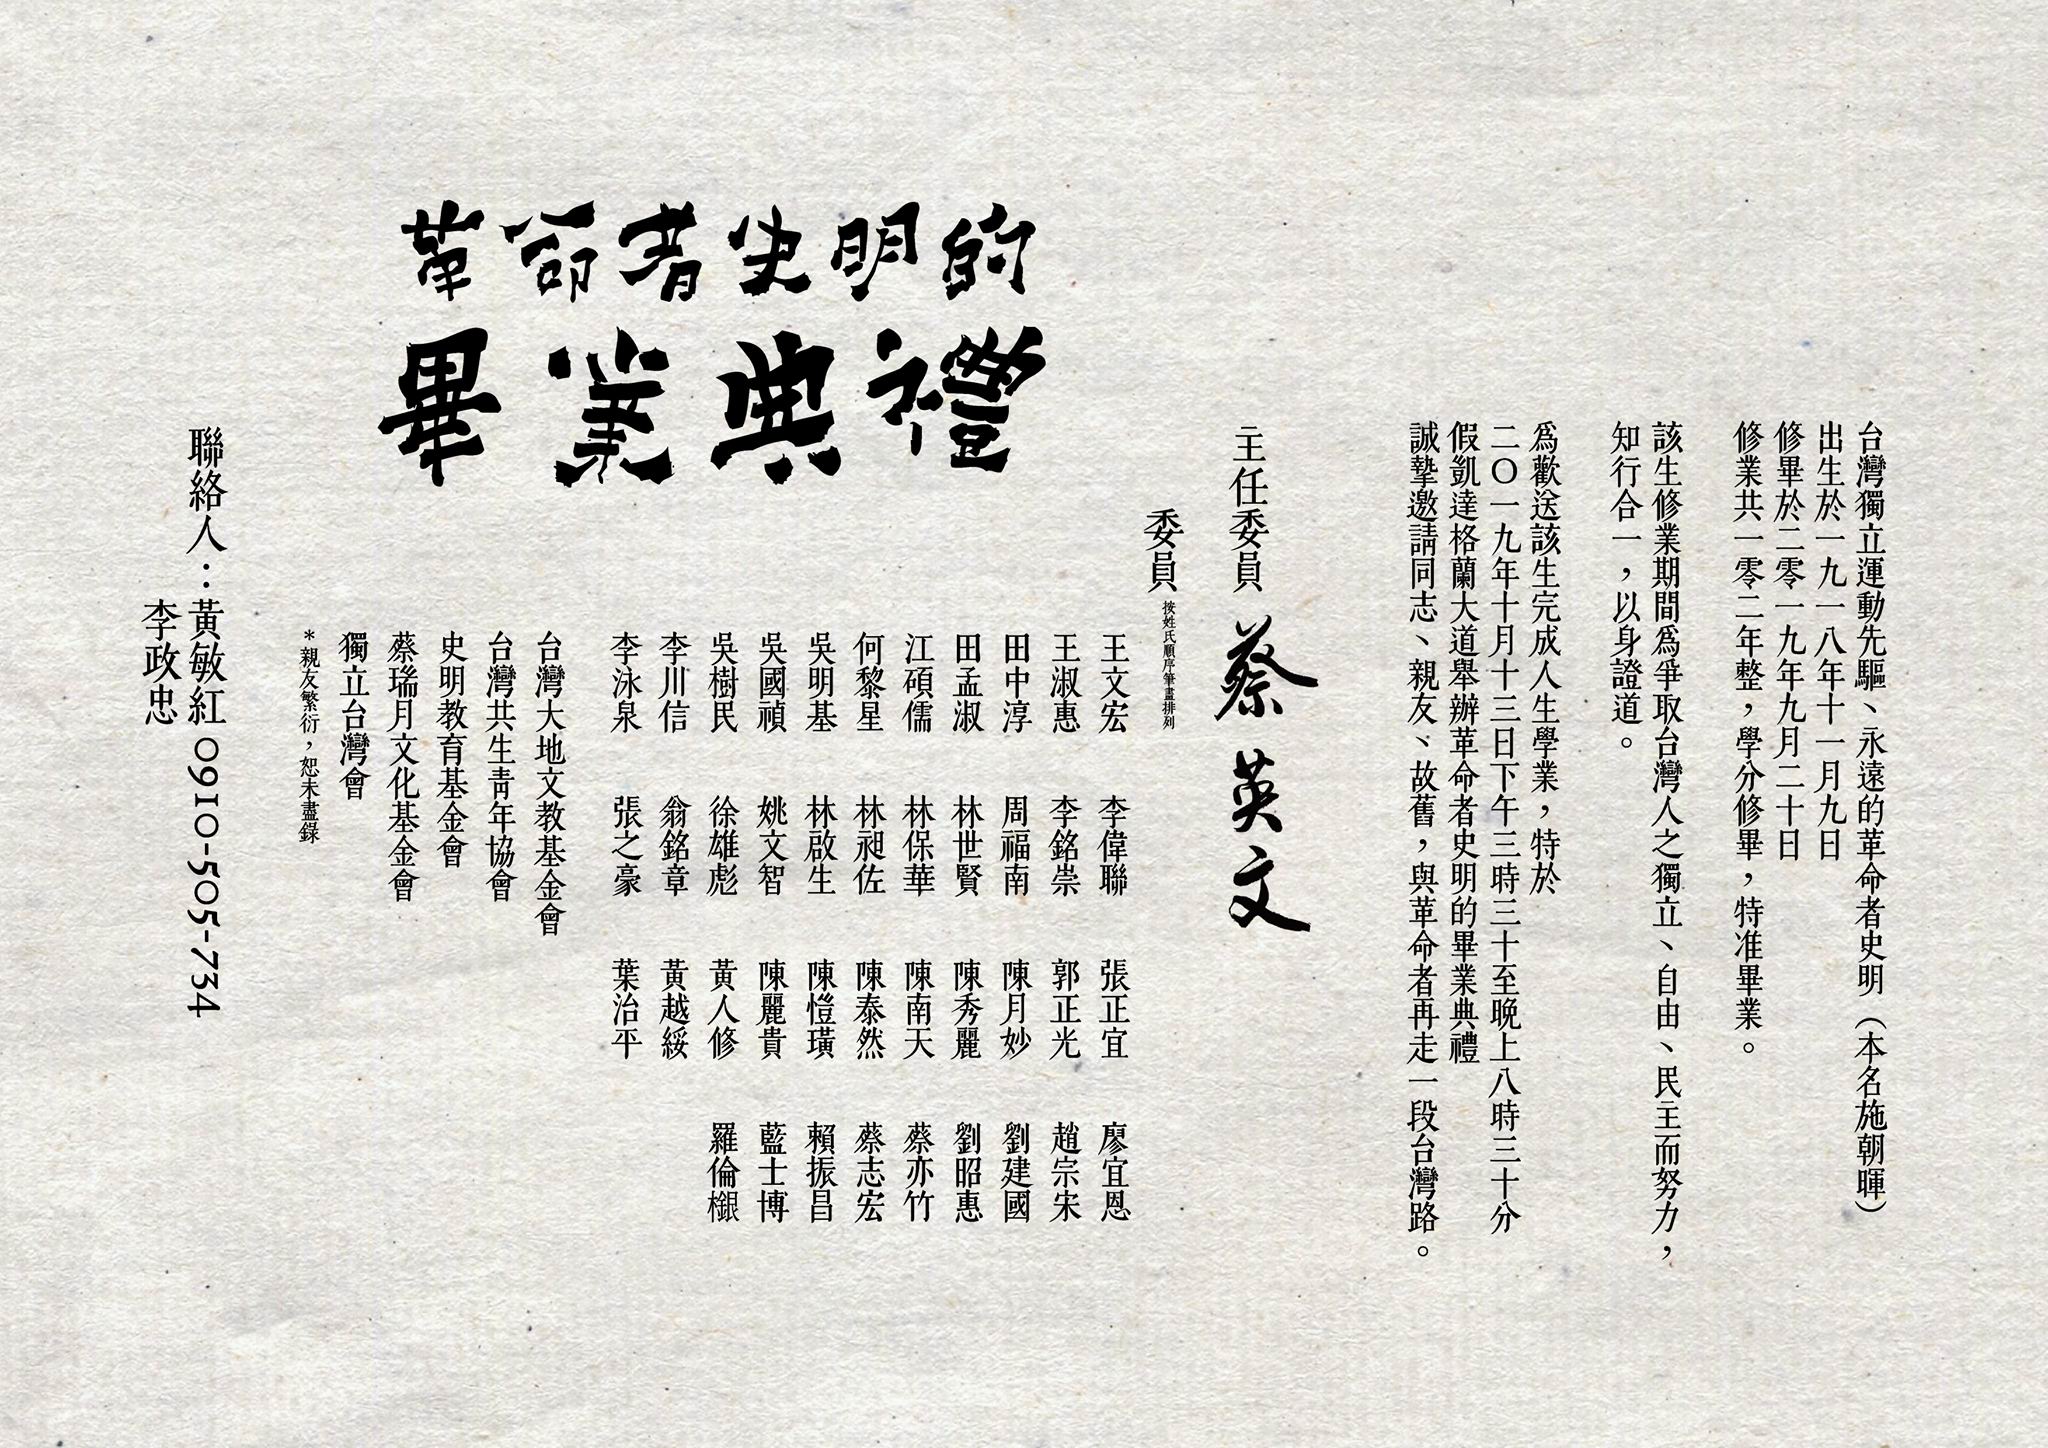 台灣獨立運動先驅、永遠的革命者史明（本名施朝暉）
出生於一九一八年十一月九日
修畢於二零一九年九月二十日
修業共一零二年整，學分修畢，特准畢業。
該生修業期間為爭取台灣人之獨立、自由、民主而努力，
知行合一，以身證道。
為歡送該生完成人生學業，特於
二〇一九年十月十三日下午三時三十至晚上八時三十分
假凱達格蘭大道舉辦革命者史明的畢業典禮
誠摯邀請同志、親友、故舊，與革命者再走一段台灣路。
主任委員 蔡英文
委員 按姓氏順序筆畫排列
王文宏 李偉聯 張正宜 廖宜恩
王淑惠 李銘崇 郭正光 趙宗朱
田中淳 周福南 陳月妙 劉建國
田孟淑 林世賢 陳秀麗 劉昭惠
江碩儒 林保華 陳南天 蔡亦竹
何黎星 林昶佐 陳泰然 蔡志宏
吳明基 林啟生 陳愷璜 賴振昌
吳國禎 姚文智 陳麗貴 藍士博
吳樹民 徐雄彪 黃人修 羅倫檭
李川信 翁銘章 黃越綏
李泳泉 張之豪 葉治平
台灣大地文教基金會
台灣共生青年協會
史明教育基金會
蔡瑞月文化基金會
獨立台灣會
*親友繁衍，恕未盡錄
革命者史明的
畢業典禮
聯絡人：黃敏紅 0910-505-734
李政忠